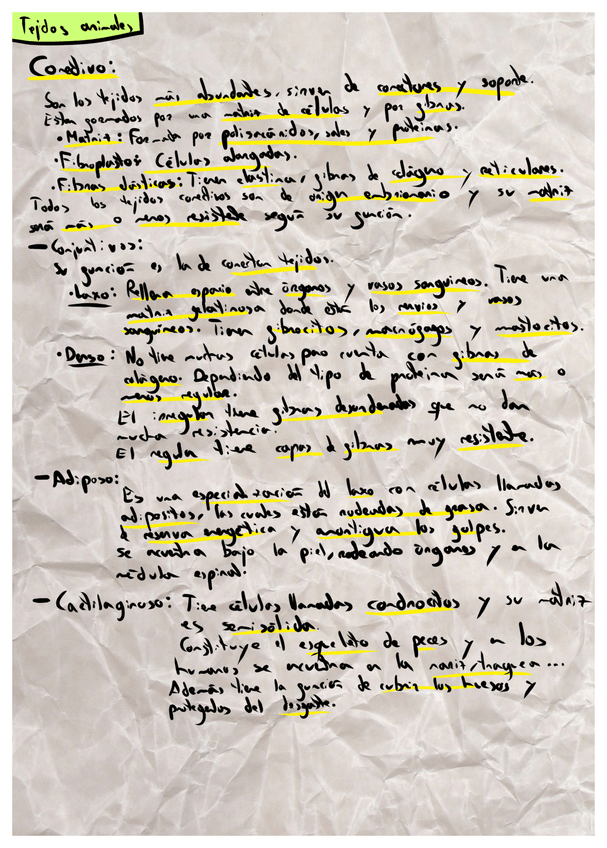 Tejidos animales
Conectivo:
Son los tejidos más abundantes, sirven de conectores y soporte.
Estan formados por una matriz de células y por fibras.
• Matriz: Formada por polisacáridos, sales y proteinas.
• Fibroplastos: Células alargadas.
• Fibras elásticas: Tienen elastina, fibras de colágeno y reticulares.
Todos los tejidos conectivos son de origen embrionario y su matriz
será más o menos resistente según su función.
– Conjuntivos:
Su función es la de conectar tejidos.
• Laxo: Rellena espacio entre órganos y vasos sanguineos. Tiene una
matriz gelatinosa donde están los nervios y vasos
sanguíneos. Tienen fibrocitos, macrófagos y mastocitos.
• Denso: No tiene muchas células pero cuenta con fibras de
colágeno. Dependiendo del tipo de proteina será más o
menos regular.
El irregular tiene fibras desordenadas que no dan
mucha resistencia.
El regular tiene capas de fibras muy resistente.
– Adiposo:
Es una especialización del laxo con células llamadas
adipositos, las cuales están rodeadas de grasa. Sirven
de reserva energética y amortiguan los golpes.
Se encuentra bajo la piel, rodeando órganos y en la
médula espinal.
– Cartilaginoso: Tiene células llamadas condrocitos y su matriz
es semisólida.
Constituye el esqueleto de peces y en los
humanos se encuentra en la nariz, tráquea...
Además tiene la función de cubrir los huesos y
protegelos del desgaste.